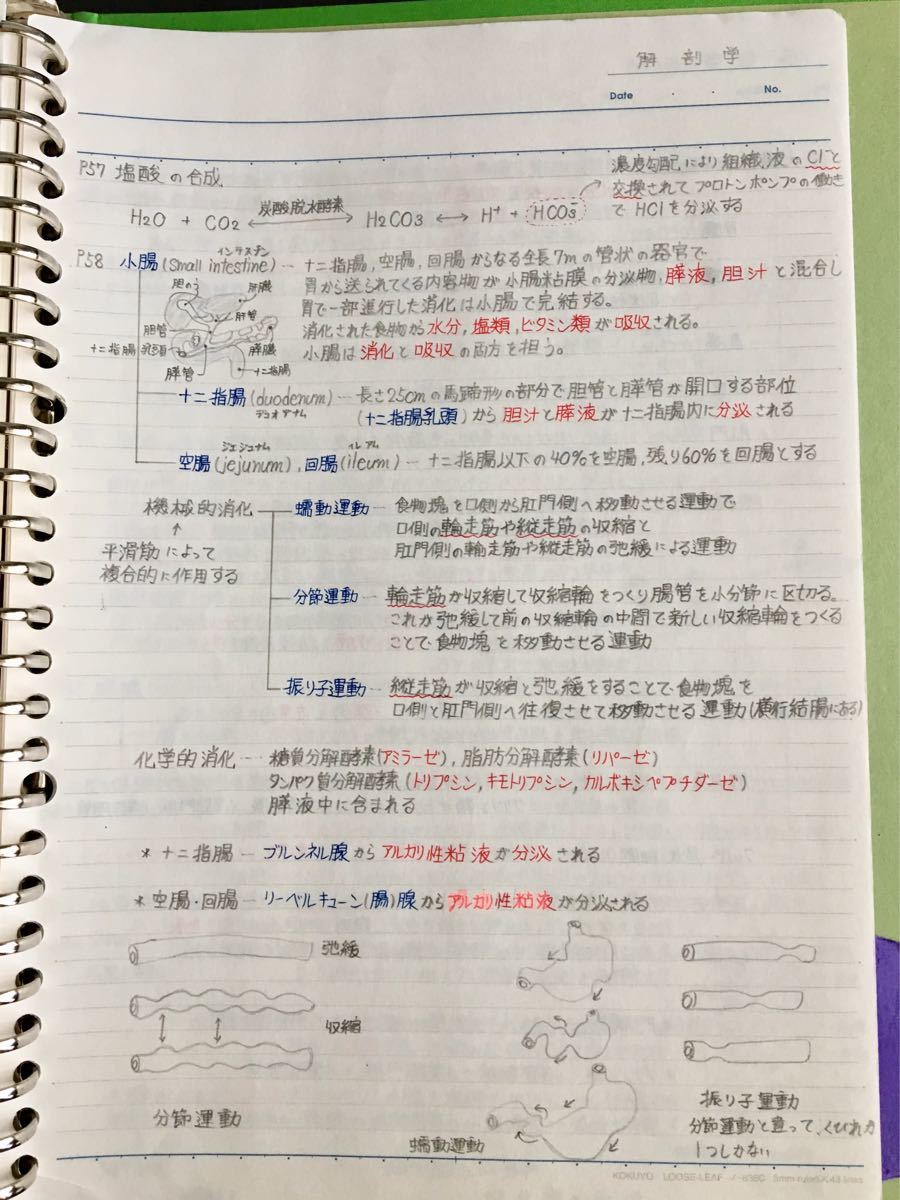 解剖学
Date No.
P57 塩酸の合成
濃度勾配により組織液のCl⁻と
交換されてプロトンポンプの働き
でHClを分泌する
炭酸脱水酵素
H2O + CO2 ⟷ H2CO3 ⟷ H⁺ + HCO3⁻
インテスチン
P58 小腸(Small intestine)‥十二指腸,空腸,回腸からなる全長7mの管状の器官で
胃から送られてくる内容物が小腸粘膜の分泌物,膵液,胆汁と混合し
胃で一部進行した消化は小腸で完結する。
消化された食物から水分,塩類,ビタミン類が吸収される。
小腸は消化と吸収の両方を担う。
胆のう
肝臓
肝管
胆管
十二指腸乳頭
膵臓
膵管
十二指腸
十二指腸(duodenum)―長さ25cmの馬蹄形の部分で胆管と膵管が開口する部位
デュオデナム
(十二指腸乳頭)から胆汁と膵液が十二指腸内に分泌される
ジェジュナム イレアム
空腸(jejunum),回腸(ileum)―十二指腸以下の40%を空腸,残り60%を回腸とする
機械的消化
↑
平滑筋によって
複合的に作用する
蠕動運動―食物塊を口側から肛門側へ移動させる運動で
口側の輪走筋や縦走筋の収縮と
肛門側の輪走筋や縦走筋の弛緩による運動
分節運動―輪走筋が収縮して収縮輪をつくり腸管を小分節に区切る。
これが弛緩して前の収縮輪の中間で新しい収縮輪をつくる
ことで食物塊を移動させる運動
振り子運動―縦走筋が収縮と弛緩をすることで食物塊を
口側と肛門側へ往復させて移動させる運動(横行結腸にある)
化学的消化‥糖質分解酵素(アミラーゼ),脂肪分解酵素(リパーゼ)
タンパク質分解酵素(トリプシン,キモトリプシン,カルボキシペプチダーゼ)
膵液中に含まれる
*十二指腸―ブルンネル腺からアルカリ性粘液が分泌される
*空腸・回腸―リーベルキューン(腸)腺からアルカリ性粘液が分泌される
弛緩
収縮
分節運動
蠕動運動
振り子運動
分節運動と違って、くびれが
1つしかない
KOKUYO LOOSE-LEAF ノ-836C 5mm ruled×43 lines